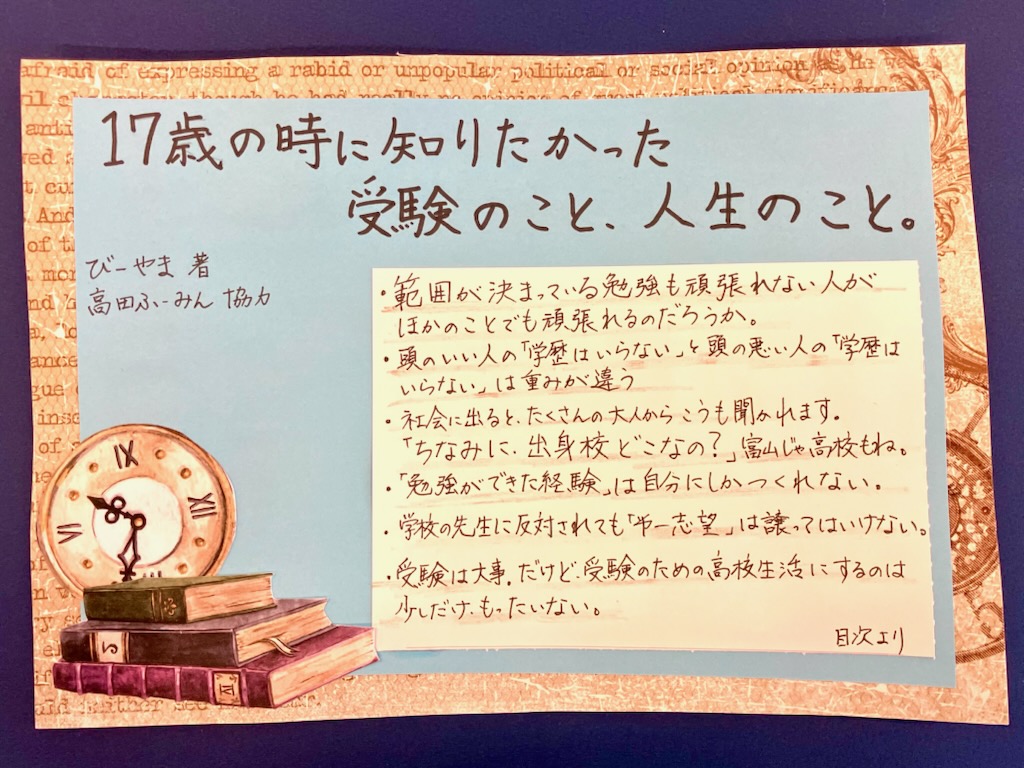 afraid of expressing a rabid or unpopular political or social opinion as he was
17歳の時に知りたかった
受験のこと、人生のこと。
びーやま 著
高田ふーみん 協力
・範囲が決まっている勉強も頑張れない人が
ほかのことでも頑張れるのだろうか。
・頭のいい人の「学歴はいらない」と頭の悪い人の「学歴は
いらない」は重みが違う
・社会に出ると、たくさんの大人からこうも聞かれます。
「ちなみに、出身校どこなの?」富山じゃ高校もね。
・「勉強ができた経験」は自分にしかつくれない。
・学校の先生に反対されても「第一志望」は譲ってはいけない。
・受験は大事。だけど、受験のための高校生活にするのは
少しだけ、もったいない。
目次より